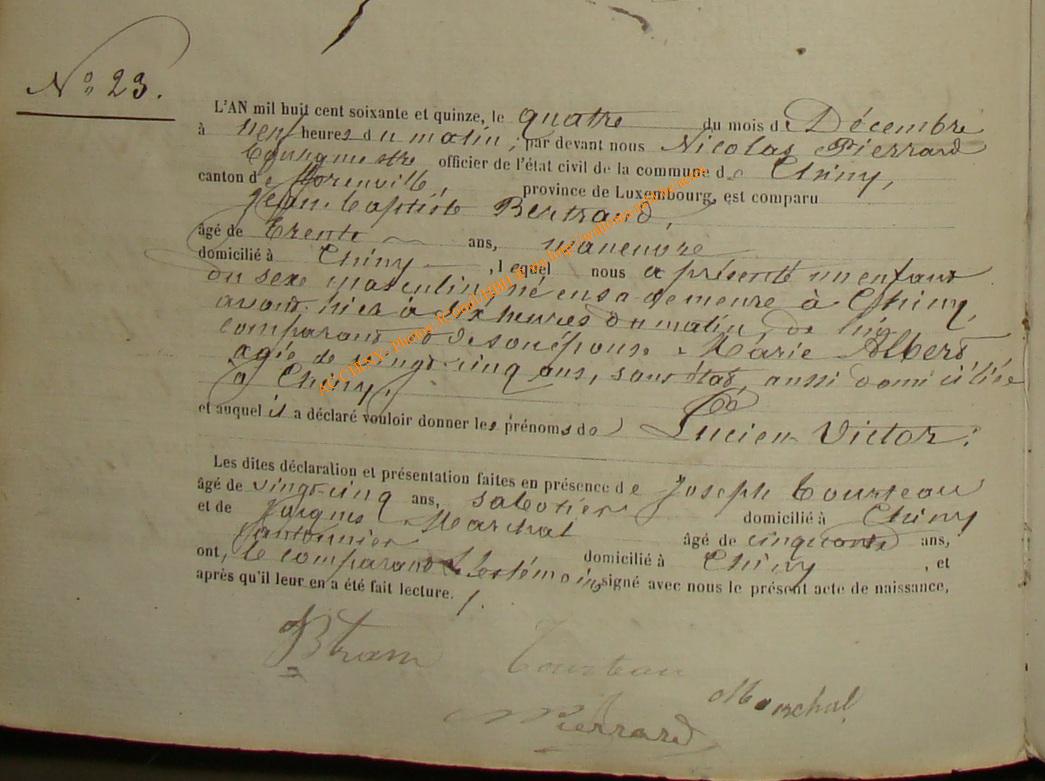 N° 23.
L'AN mil huit cent soixante et quinze, le quatre du mois de Décembre
à neuf heures du matin, par devant nous Nicolas Pierrard
bourgmestre officier de l'état civil de la commune de Chiny,
canton de Florenville, province de Luxembourg, est comparu
Jean baptiste Bertrand,
âgé de trente ans, manoeuvre
domicilié à Chiny, lequel nous a présenté un enfant
du sexe masculin, né en sa demeure à Chiny,
avant hier à dix heures du matin, de lui
comparant et de son épouse Marie Albert
agée de vingt cinq ans, sans état, aussi domiciliée
à Chiny,
et auquel il a déclaré vouloir donner les prénoms de Lucien Victor.
Les dites déclaration et présentation faites en présence de Joseph Tourteau
âgé de vingt-cinq ans, sabotier domicilié à Chiny
et de Jacques Marchal âgé de cinquante ans,
Cantonnier domicilié à Chiny, et
ont, le comparant & les témoins signé avec nous le présent acte de naissance,
après qu'il leur en a été fait lecture.
Tourteau
Marchal
Pierrard